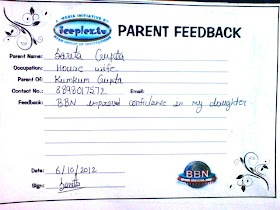 A MEDIA INITIATIVE BY
iceplex.tv
PARENT FEEDBACK
Parent Name: Sarita Gupta
Occupation: House wife
Parent Of: Kumkum Gupta
Contact No.: 8898017572 Email:
Feedback: BBN improved confidence in my daughter
Date: 6/10/2012
Sign: Sarita
BBN